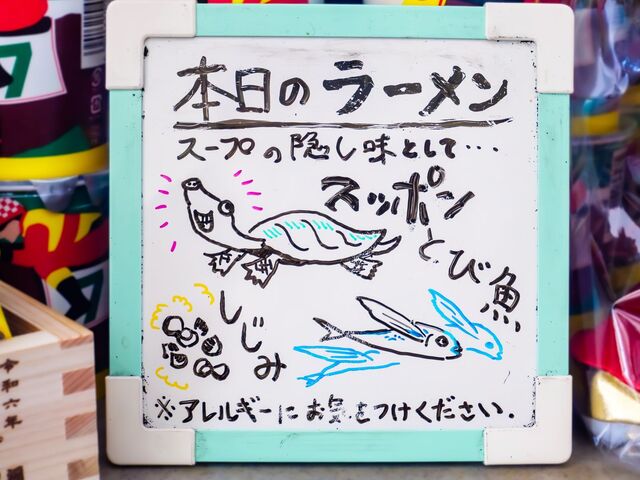 本日のラーメン
スープの隠し味として…
スッポン
とび魚
しじみ
※アレルギーにお気をつけください.
令和六年